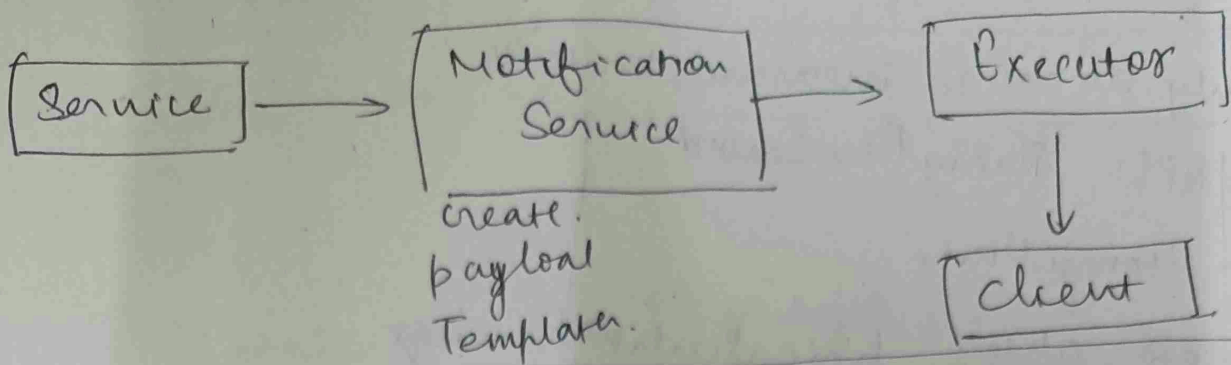 Service
Notification
Service
create.
payload
Templates.
Executor
client